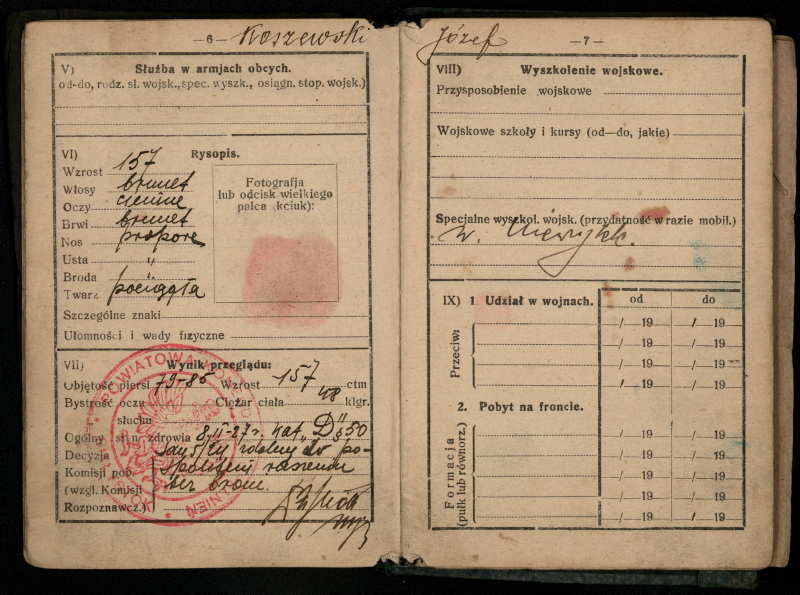 —6— Koszewski
V) Służba w armjach obcych.
od-do, rodz. sł. wojsk., spec. wyszk., osiągn. stop. wojsk.)
VI) Rysopis.
Wzrost 157
Włosy brunet
Oczy ciemne
Brwi brunet
Nos propore
Usta "
Broda "
Twarz pociągła
Fotografja
lub odcisk wielkiego
palca (kciuk):
Szczególne znaki
Ułomności i wady fizyczne
VII) Wynik przeglądu:
Objętość piersi 79-85 Wzrost 157 ctm
Bystrość oczu Ciężar ciała 48 klgr.
" słuchu
Ogólny st n zdrowia 8-II-27 r. kat „D" § 50
Decyzja zdolny do po-
Komisji pob. spolitem ruszeniu
(wzgl. Komisji bez broni.
Rozpoznawcz.)
POWIATOWA
Józef —7—
VIII) Wyszkolenie wojskowe.
Przysposobienie wojskowe
Wojskowe szkoły i kursy (od—do, jakie)
Specjalne wyszkol. wojsk. (przydatność w razie mobil.)
IX) 1 Udział w wojnach. od do
Przeciw:
/ —19 / —19
/ —19 / —19
/ —19 / —19
/ —19 / —19
2. Pobyt na froncie.
Formacja
(pułk lub równorz.)
/ —19 / —19
/ —19 / —19
/ —19 / —19
/ —19 / —19
/ —19 / —19